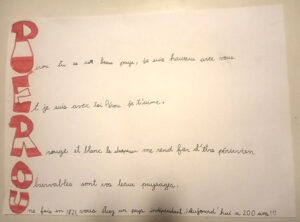 Pérou tu es un beau pays, je suis heureux avec vous
Et je suis avec toi Pérou je t'aime.
Rouge et blanc le drapeau me rend fier d'être péruvien
Observables sont vos beaux paysages.
Une fois en 1821 vous étiez un pays indépendant, aujourd'hui a 200 ans!!!